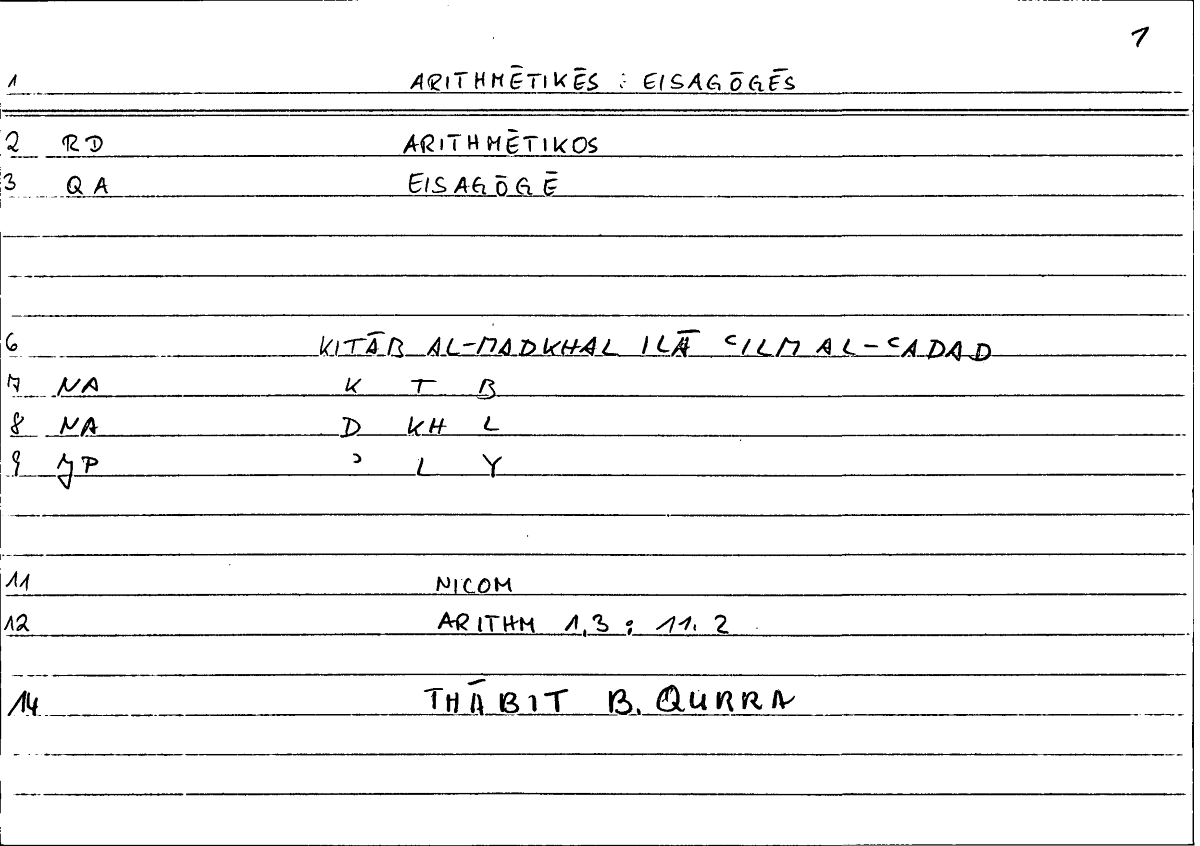 1
1 ARITHMĒTIKĒS : EISAGŌGĒS
2 RD ARITHMĒTIKOS
3 QA EISAGŌGĒ
6 KITĀB AL-MADKHAL ILĀ ʿILM AL-ʿADAD
7 NA K T B
8 NA D KH L
9 JP ʾ L Y
11 NICOM
12 ARITHM 1,3 : 11. 2
14 THĀBIT B. QURRA